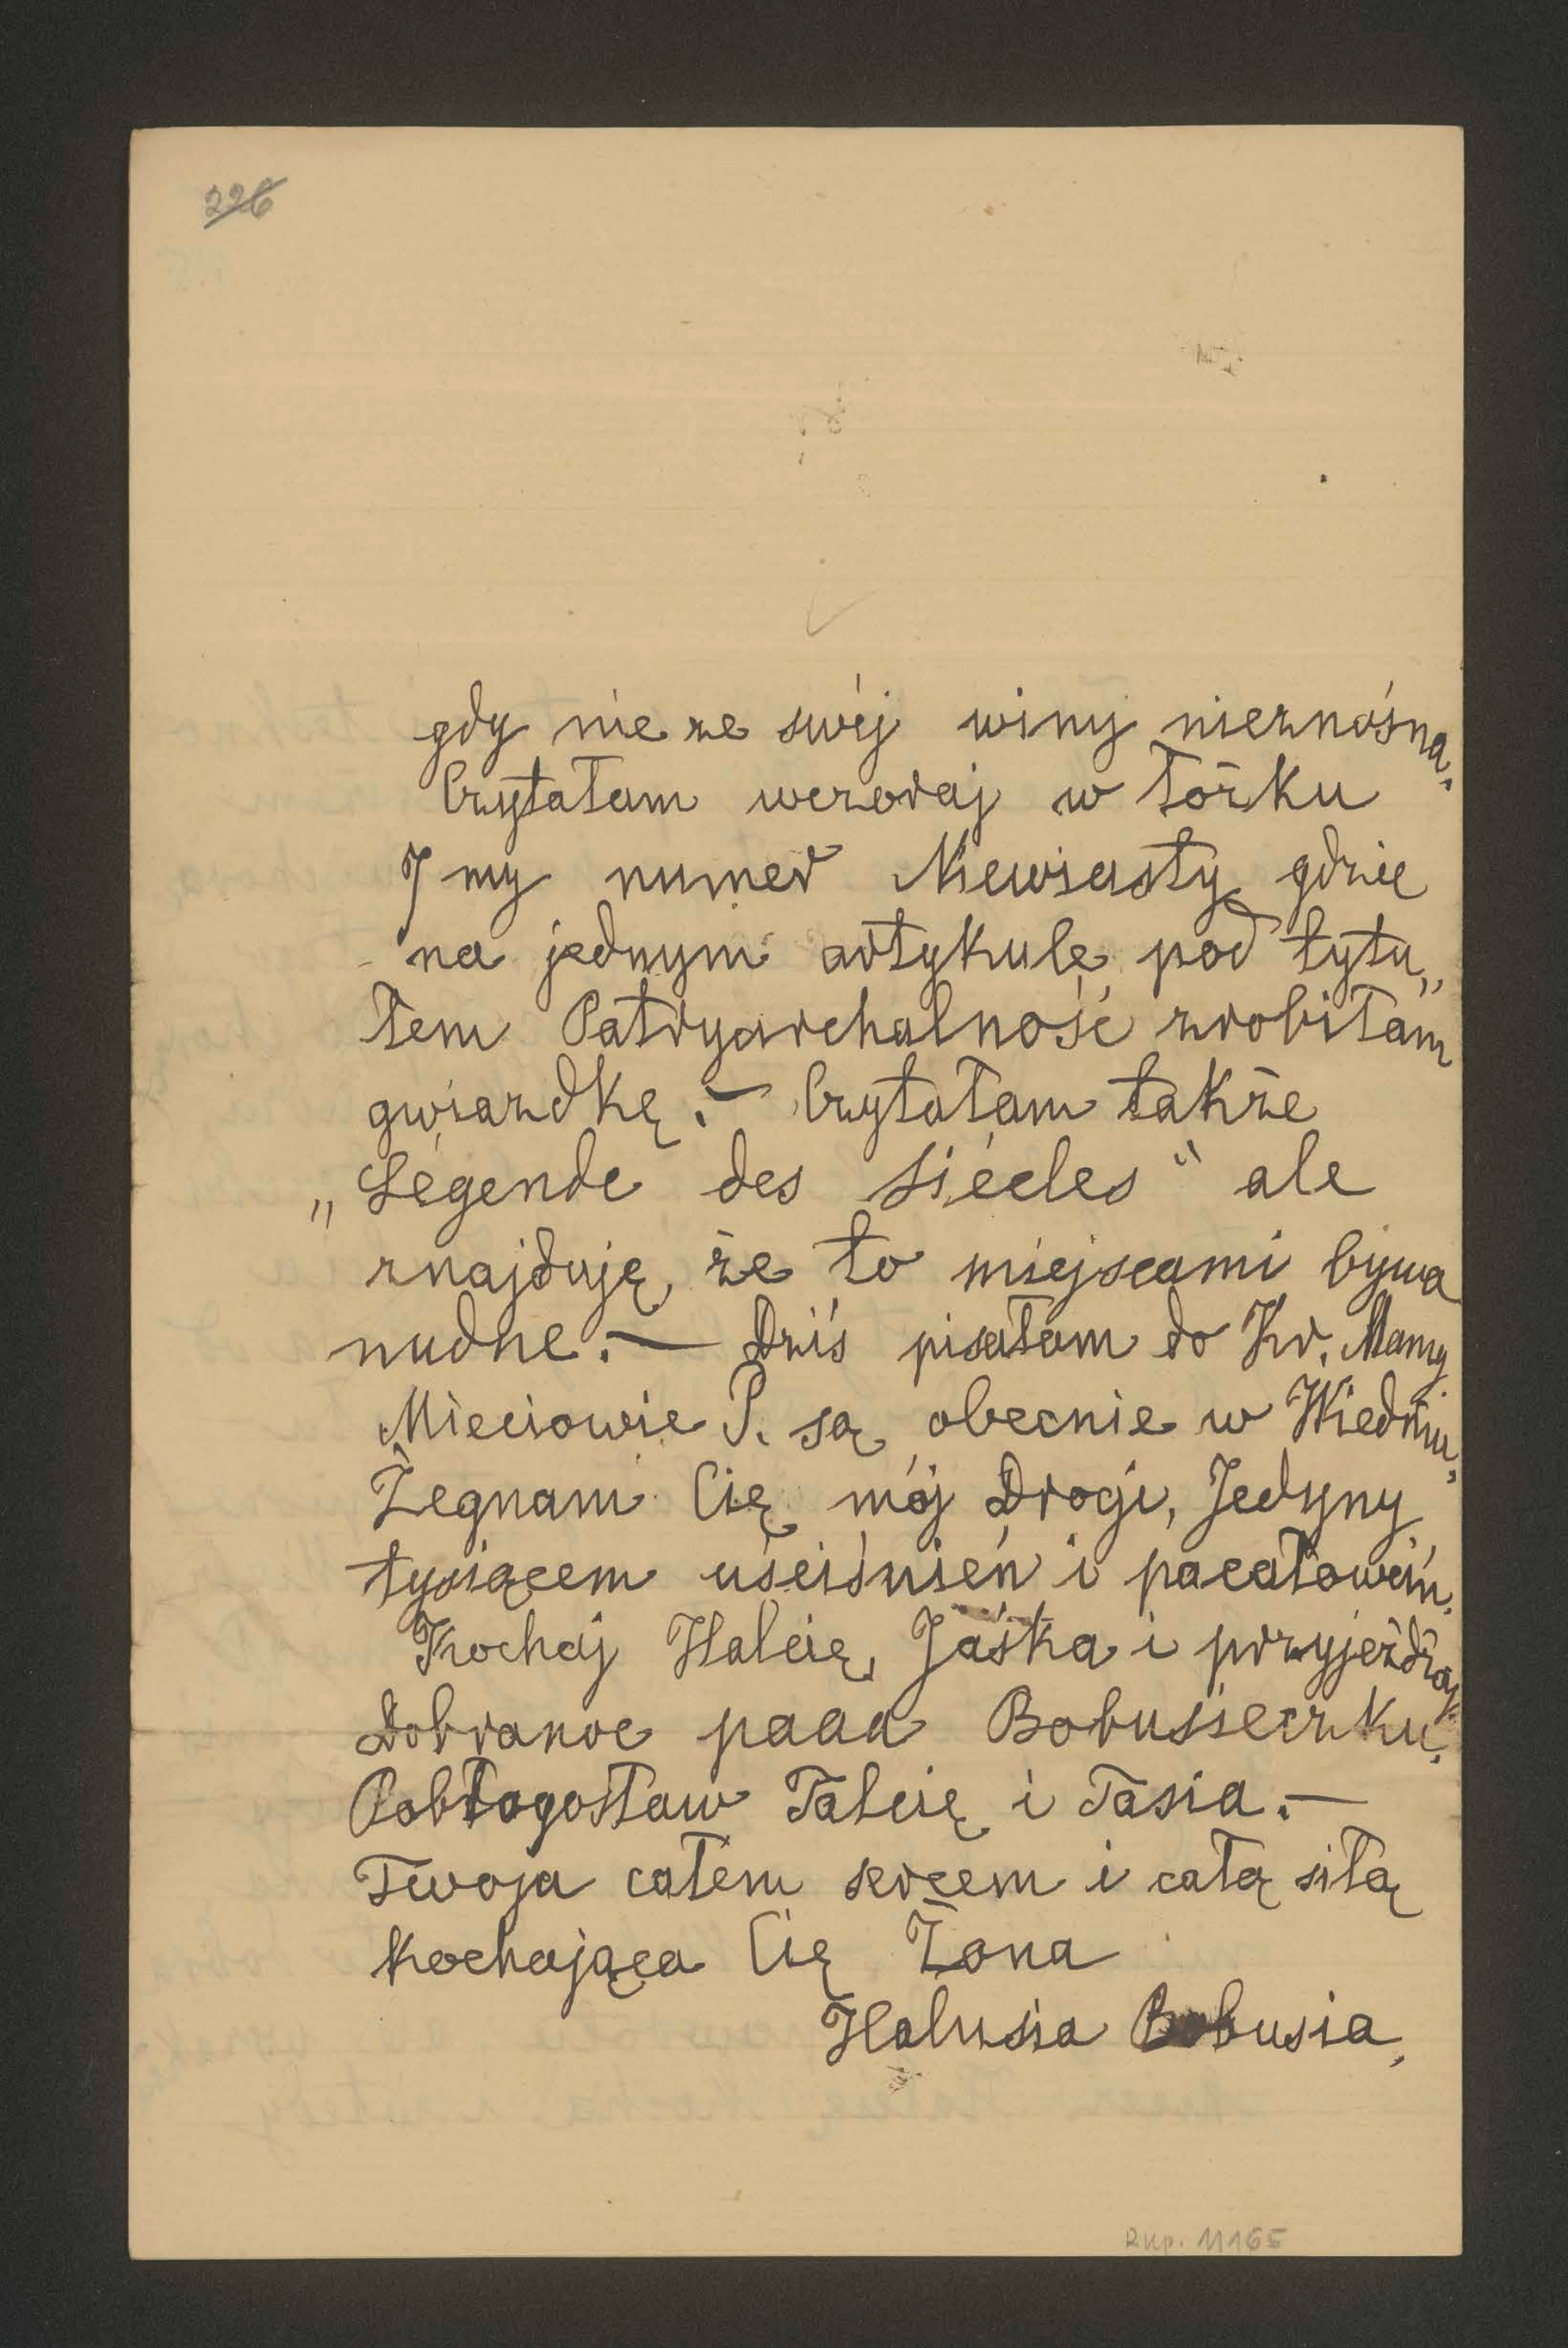 226
gdy nie ze swéj winy nieznośna.
Czytałam wczoraj w łóżku
7 my numer Niewiasty gdzie
na jednym artykule pod tytu„
łem Patryarchalność zrobiłam
gwiazdkę. — Czytałam także
„Légende des siécles" ale
znajduję, że to miejscami bywa
nudne. — Dziś pisałam do Kr. Mamy
Mieciowie P. są obecnie w Wiedniu,
Żegnam Cię mój Drogi, Jedyny
tysiącem uściśnień i pocałowań.
Kochaj Halcię, Jaśka i przyjeżdżaj.
Dobranoc paaa Bobusieczku.
Pobłogosław Talcię i Tasia. —
Twoja całem sercem i całą siłą
Kochająca Cię Żona
Halusia Bobusia,
Rkp. 11165